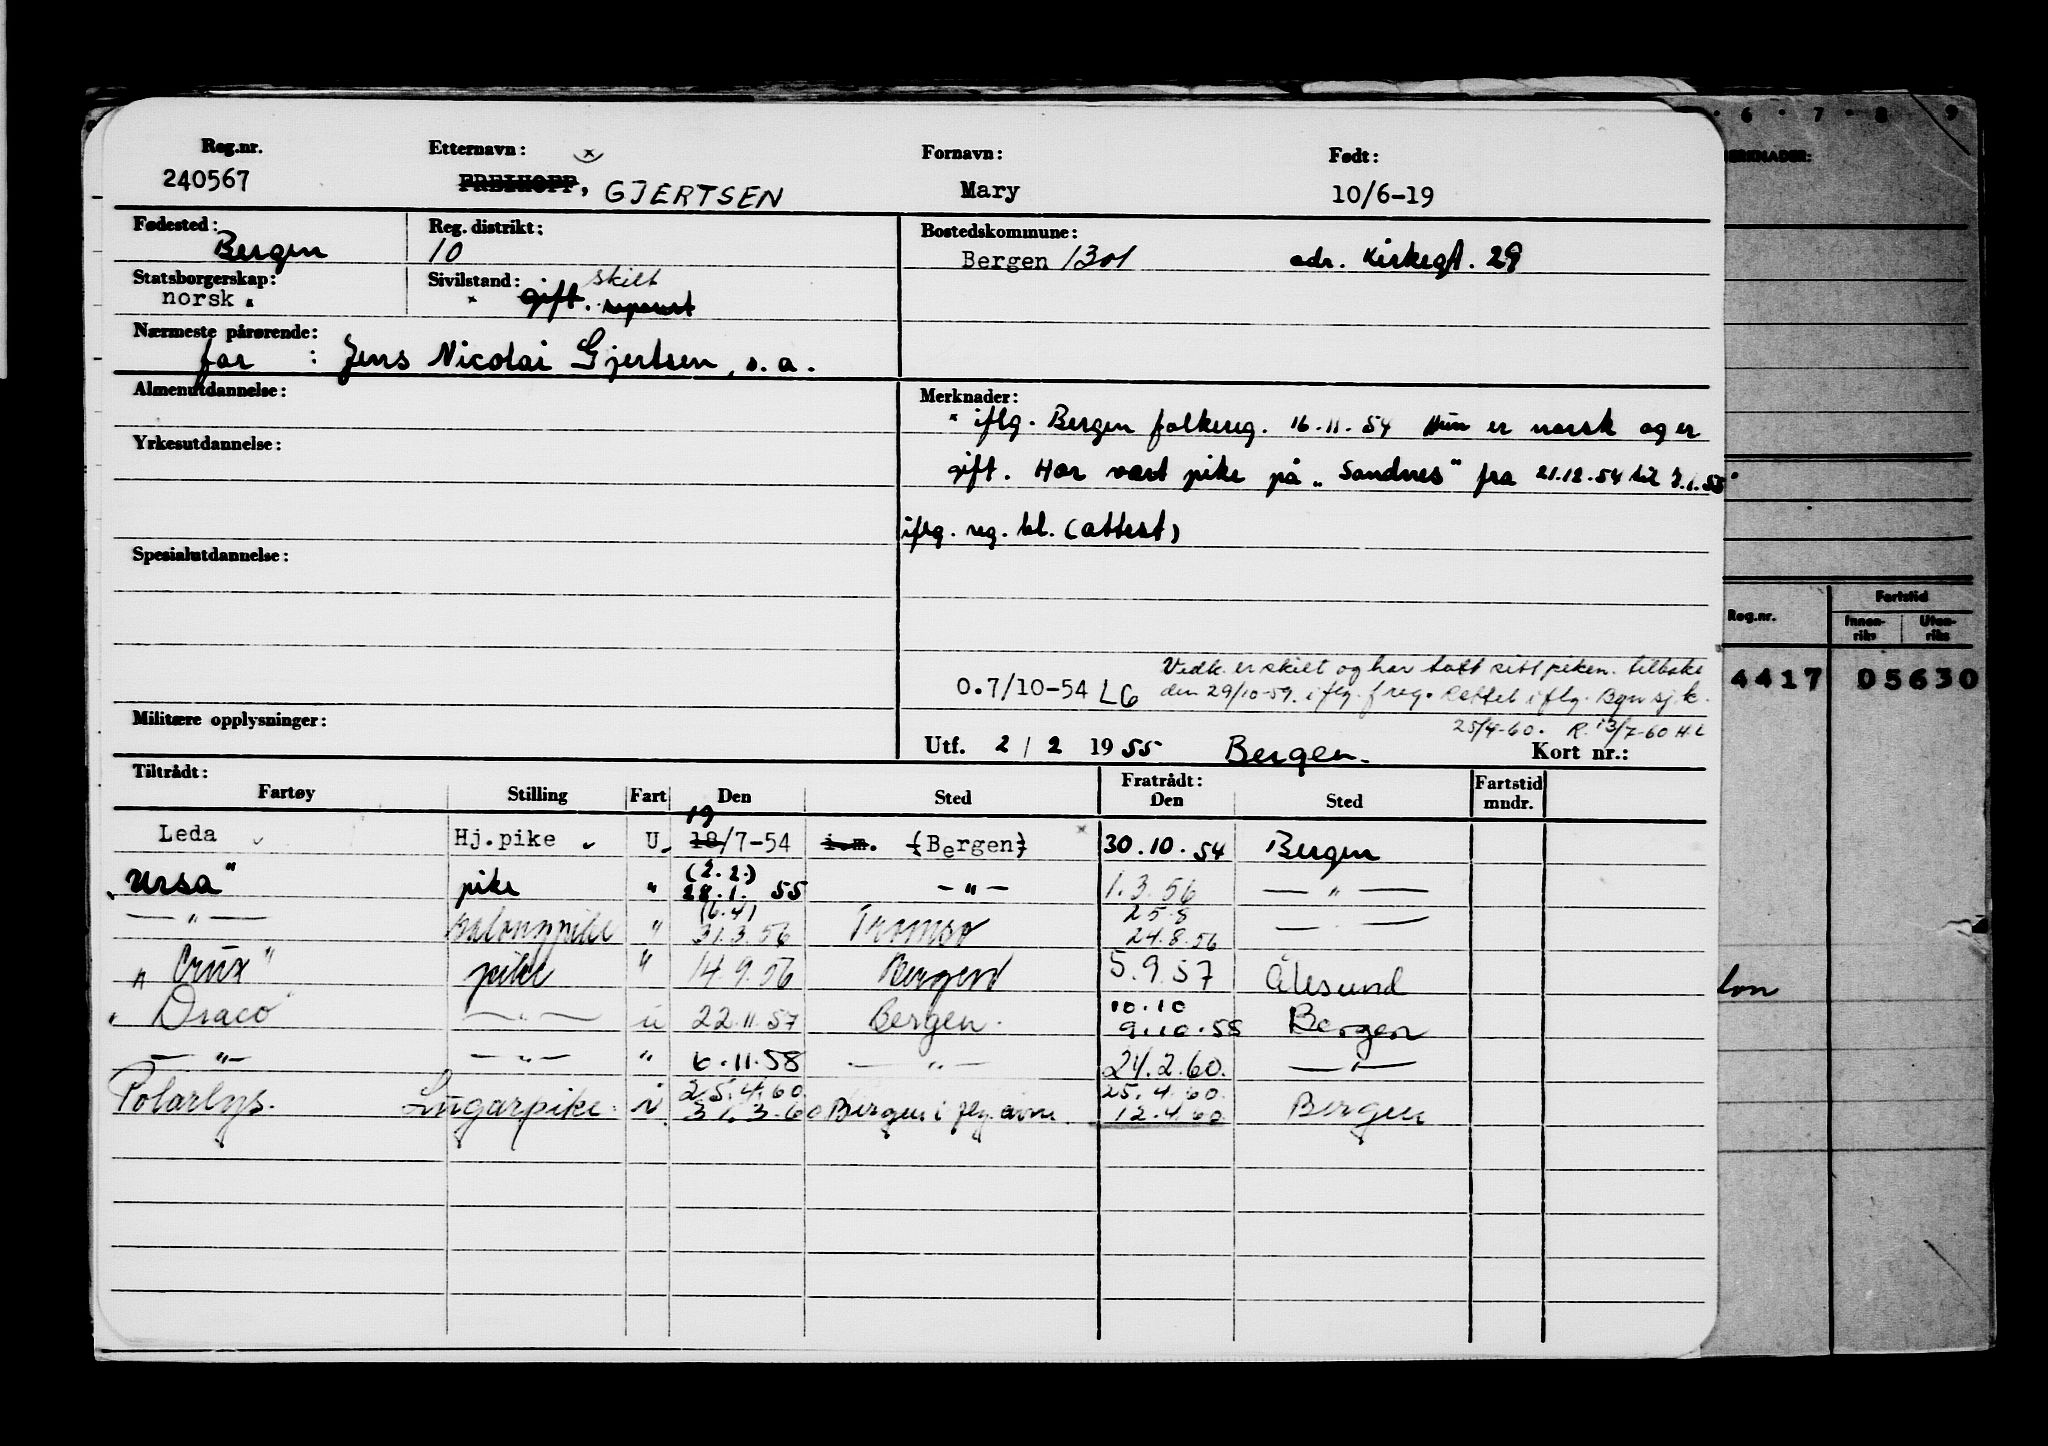 Reg.nr. Etternavn: x Fornavn: Født:
240567 FREIHOFF, GJERTSEN Mary 10/6-19
Fødested: Reg. distrikt: Bostedskommune:
Bergen 10 Bergen 1301 adr. Kirkegt. 29
Statsborgerskap: Sivilstand: skilt
norsk. x gift. separert
Nærmeste pårørende:
far : Jens Nicolai Gjertsen, s.a.
Almenutdannelse: Merknader:
x iflg. Bergen folkereg. 16.11.54 Hun er norsk og er
Yrkesutdannelse:
gift. Har vært pike på "Sandnes" fra 21.12.54 til 3.1.55
iflg. reg. bl. (attest)
Spesialutdannelse:
Vedk. er skilt og har tatt sitt piken. tilbake
0.7/10-54 LG den 29/10-59. iflg. freg. Rettet iflg. Bgn sj.k.
Militære opplysninger: 25/4-60. R. 13/7-60 H.L
Utf. 2 / 2 19 55 Bergen. Kort nr.:
Tiltrådt: Fratrådt: Fartstid
Fartøy Stilling Fart Den Sted Den Sted mndr.
19
Leda Hj.pike U. 18/7-54 i.m. (Bergen) x 30.10.54 Bergen
(2.2.)
"Ursa" pike " 28.1. 55 — " — 1.3.56 — " —
(6.4) 25.8
— " — Salongpike " 31.3.56 Tromsø 24.8.56 — " —
"Crux" pike " 14.9.56 Bergen 5.9.57 Ålesund
10.10
"Draco" — " — u 22.11.57 Bergen. 9.10.58 Bergen
— " — — " — " 6.11.58 — " — 24.2.60. — " —
25.4.60. 25.4.60.
Polarlys. Lugarpike. i 31.3.60 Bergen i flg. avm. 12.4.60 Bergen
6 7 8 9
MERKNADER:
Reg.nr. Fartstid
Innen-riks Uten-riks
4417 05630